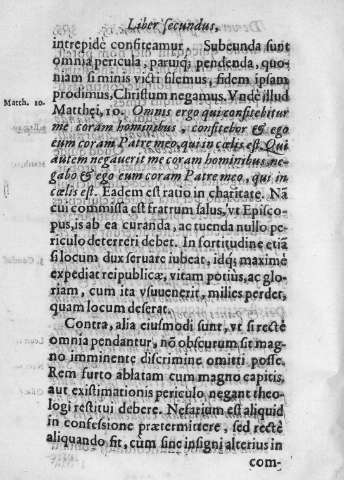 Liber secundus,
intrepidè confiteamur. Subeunda sunt
omnia pericula, paruiq; pendenda, quo-
niam si minis victi silemus, fidem ipsam
prodimus, Christum negamus. Vnde illud
Matth. 10.
Matthei, 10. Omnis ergo qui confitebitur
me coram hominibus, confitebor & ego
eum coram Patre meo, qui in cœlis est. Qui
autem negauerit me coram hominibus, ne-
gabo & ego eum coram Patre meo, qui in
cœlis est. Eadem est ratio in charitate. Nã
cui commissa est fratrum salus, vt Episco-
pus, is ab ea curanda, ac tuenda nullo pe-
riculo deterreri debet. In fortitudine etiã
si locum dux seruare iubeat, idq; maximè
expediat reipublicæ, vitam potiùs, ac glo-
riam, cum ita vsuuenerit, milies perdet,
quam locum deserat.
Contra, alia eiusmodi sunt, vt si rectè
omnia pendantur, nõ obscurum sit mag-
no imminente discrimine omitti posse.
Rem furto ablatam cum magno capitis,
aut existimationis periculo negant theo-
logi restitui debere. Nefarium est aliquid
in confessione prætermittere, sed rectè
aliquando fit, cùm sine insigni alterius in
com-